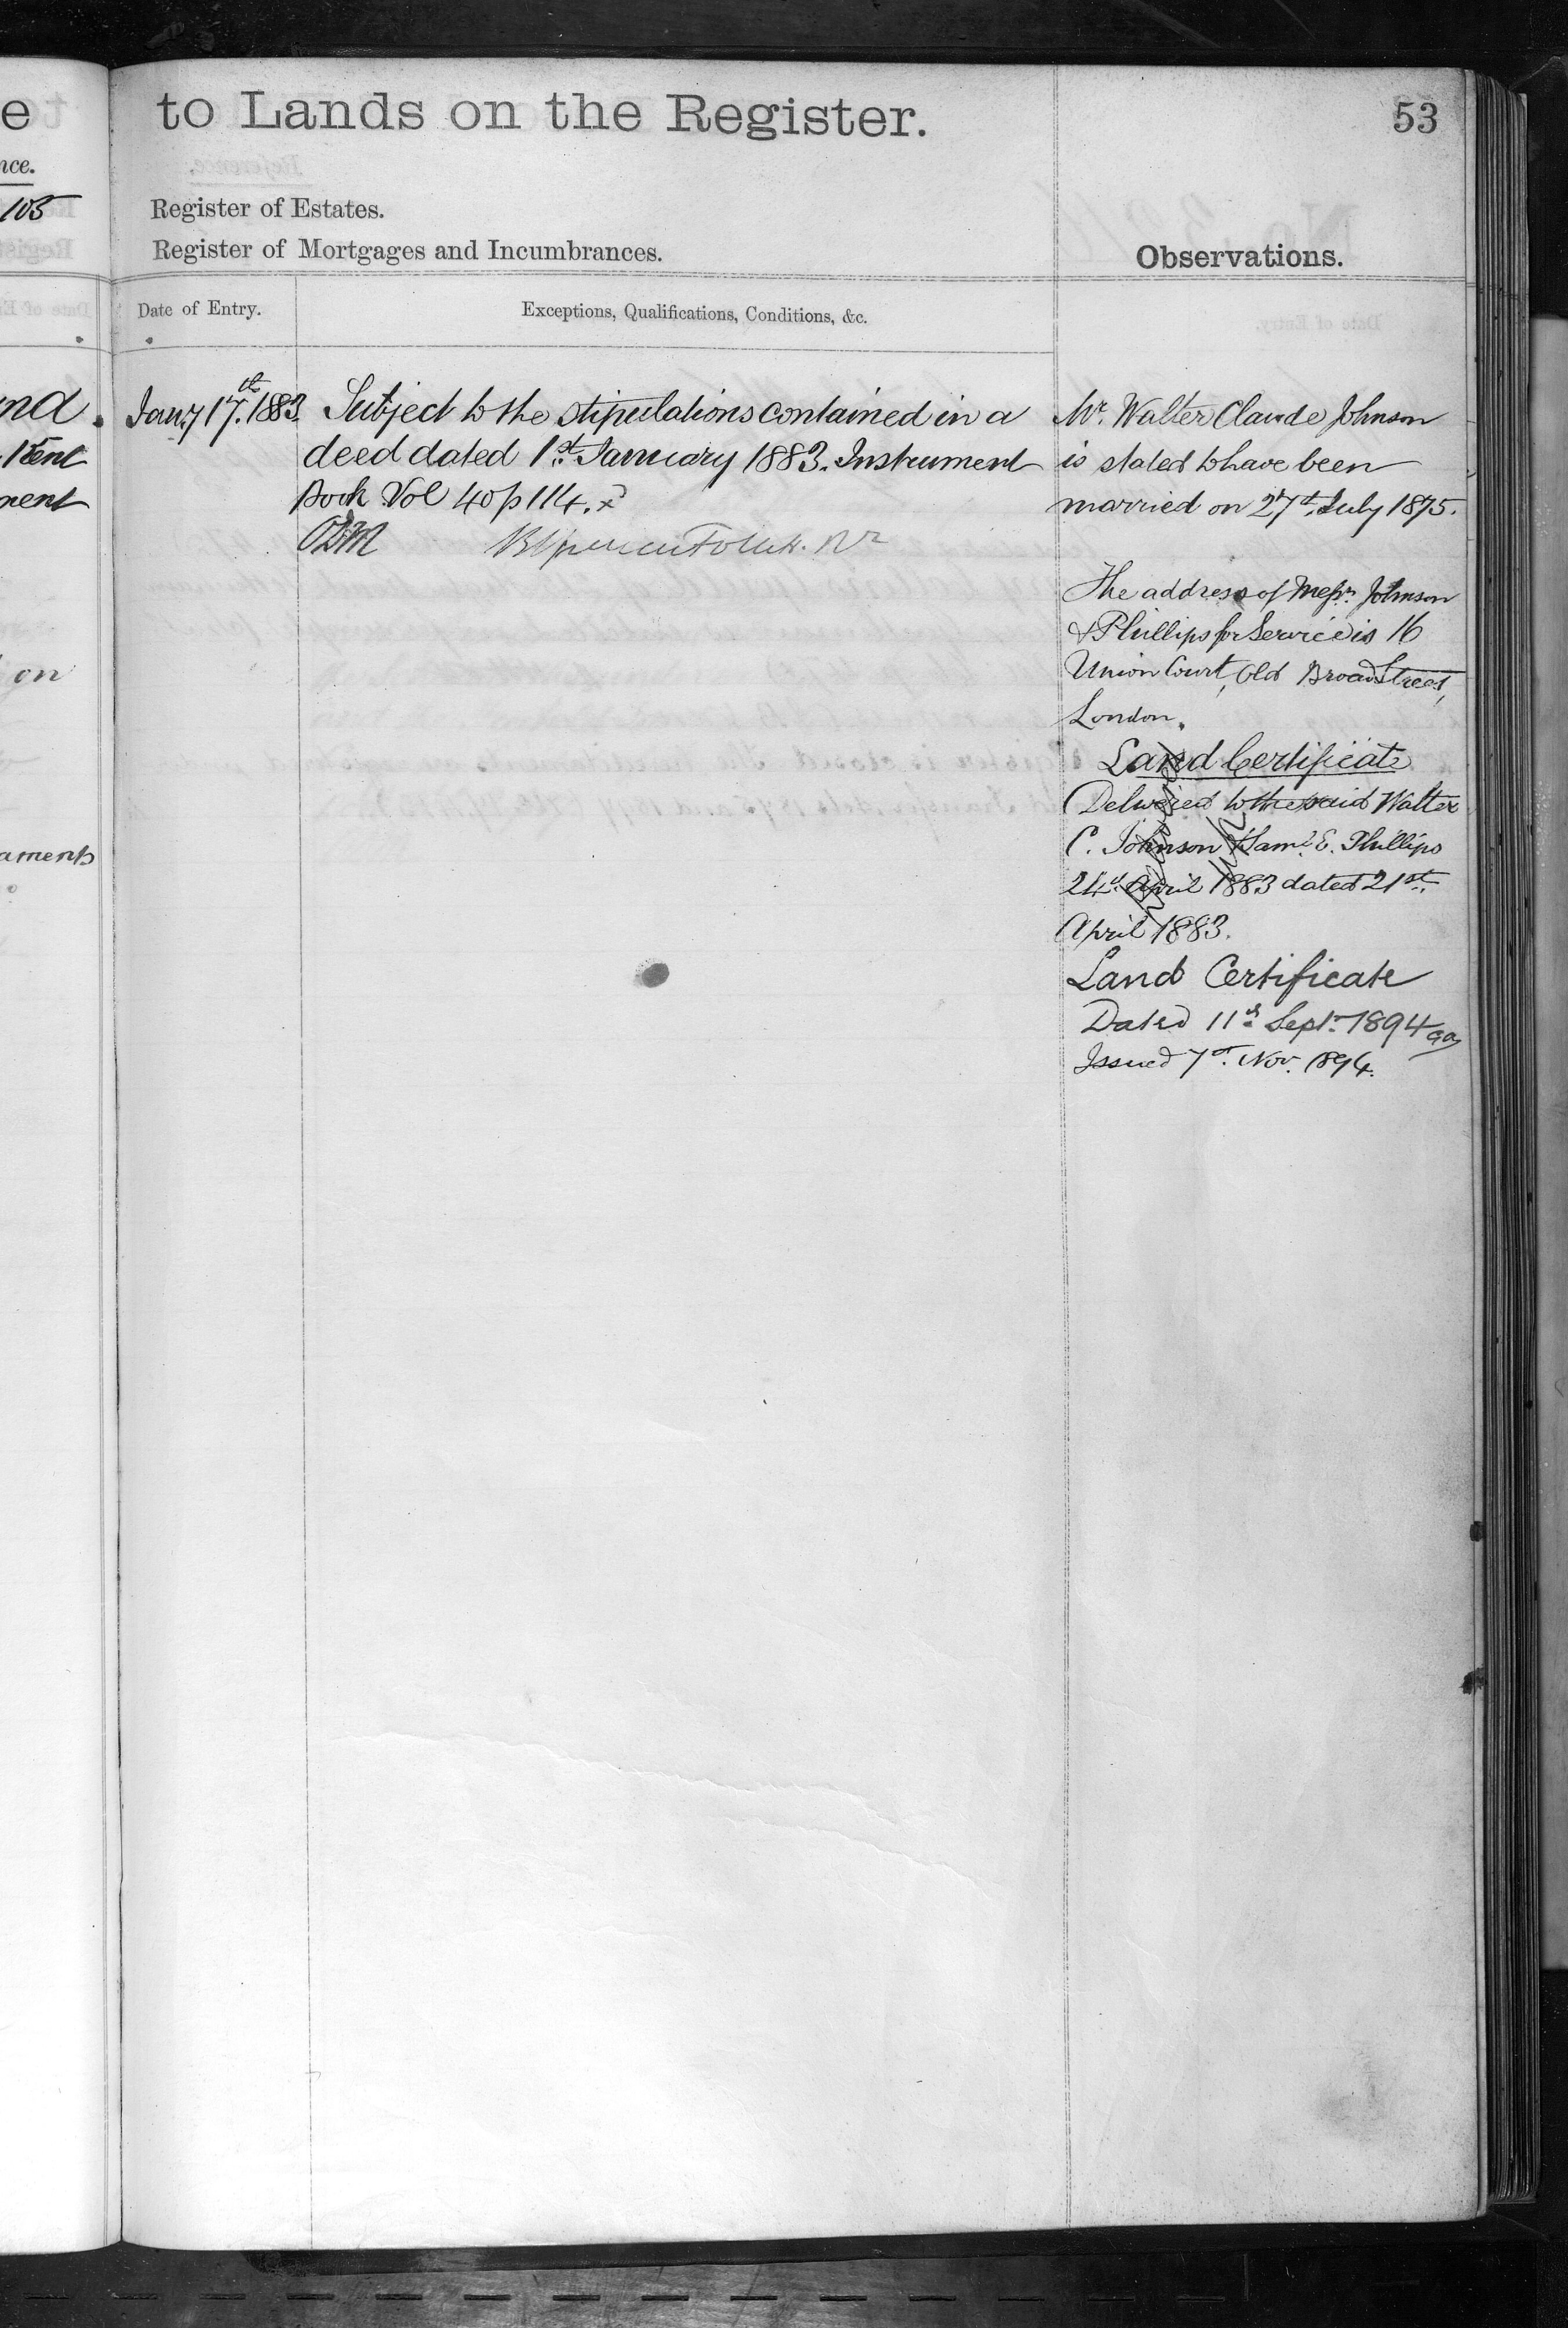 e
nce.
105
nd.
Kent
ment
on
aments
to Lands on the Register.
53
Register of Estates.
Register of Mortgages and Incumbrances.
Observations.
Date of Entry.
Exceptions, Qualifications, Conditions, &c.
Jany 17th. 1883.
Subject to the stipulations contained in a
deed dated 1st. January 1883. Instrument
Book Vol 40 p 114.
Mr. Walter Claude Johnson
is stated to have been
married on 27th. July 1875.
The address of Messrs. Johnson
& Phillips for Service is 16
Union Court, Old Broad Street,
London.
Land Certificate
Delivered to the said Walter
C. Johnson & Saml. E. Phillips
24th. April 1883 dated 21st.
April 1883.
Land Certificate
Dated 11th Sept. 1894
Issued 7th. Nov. 1894.